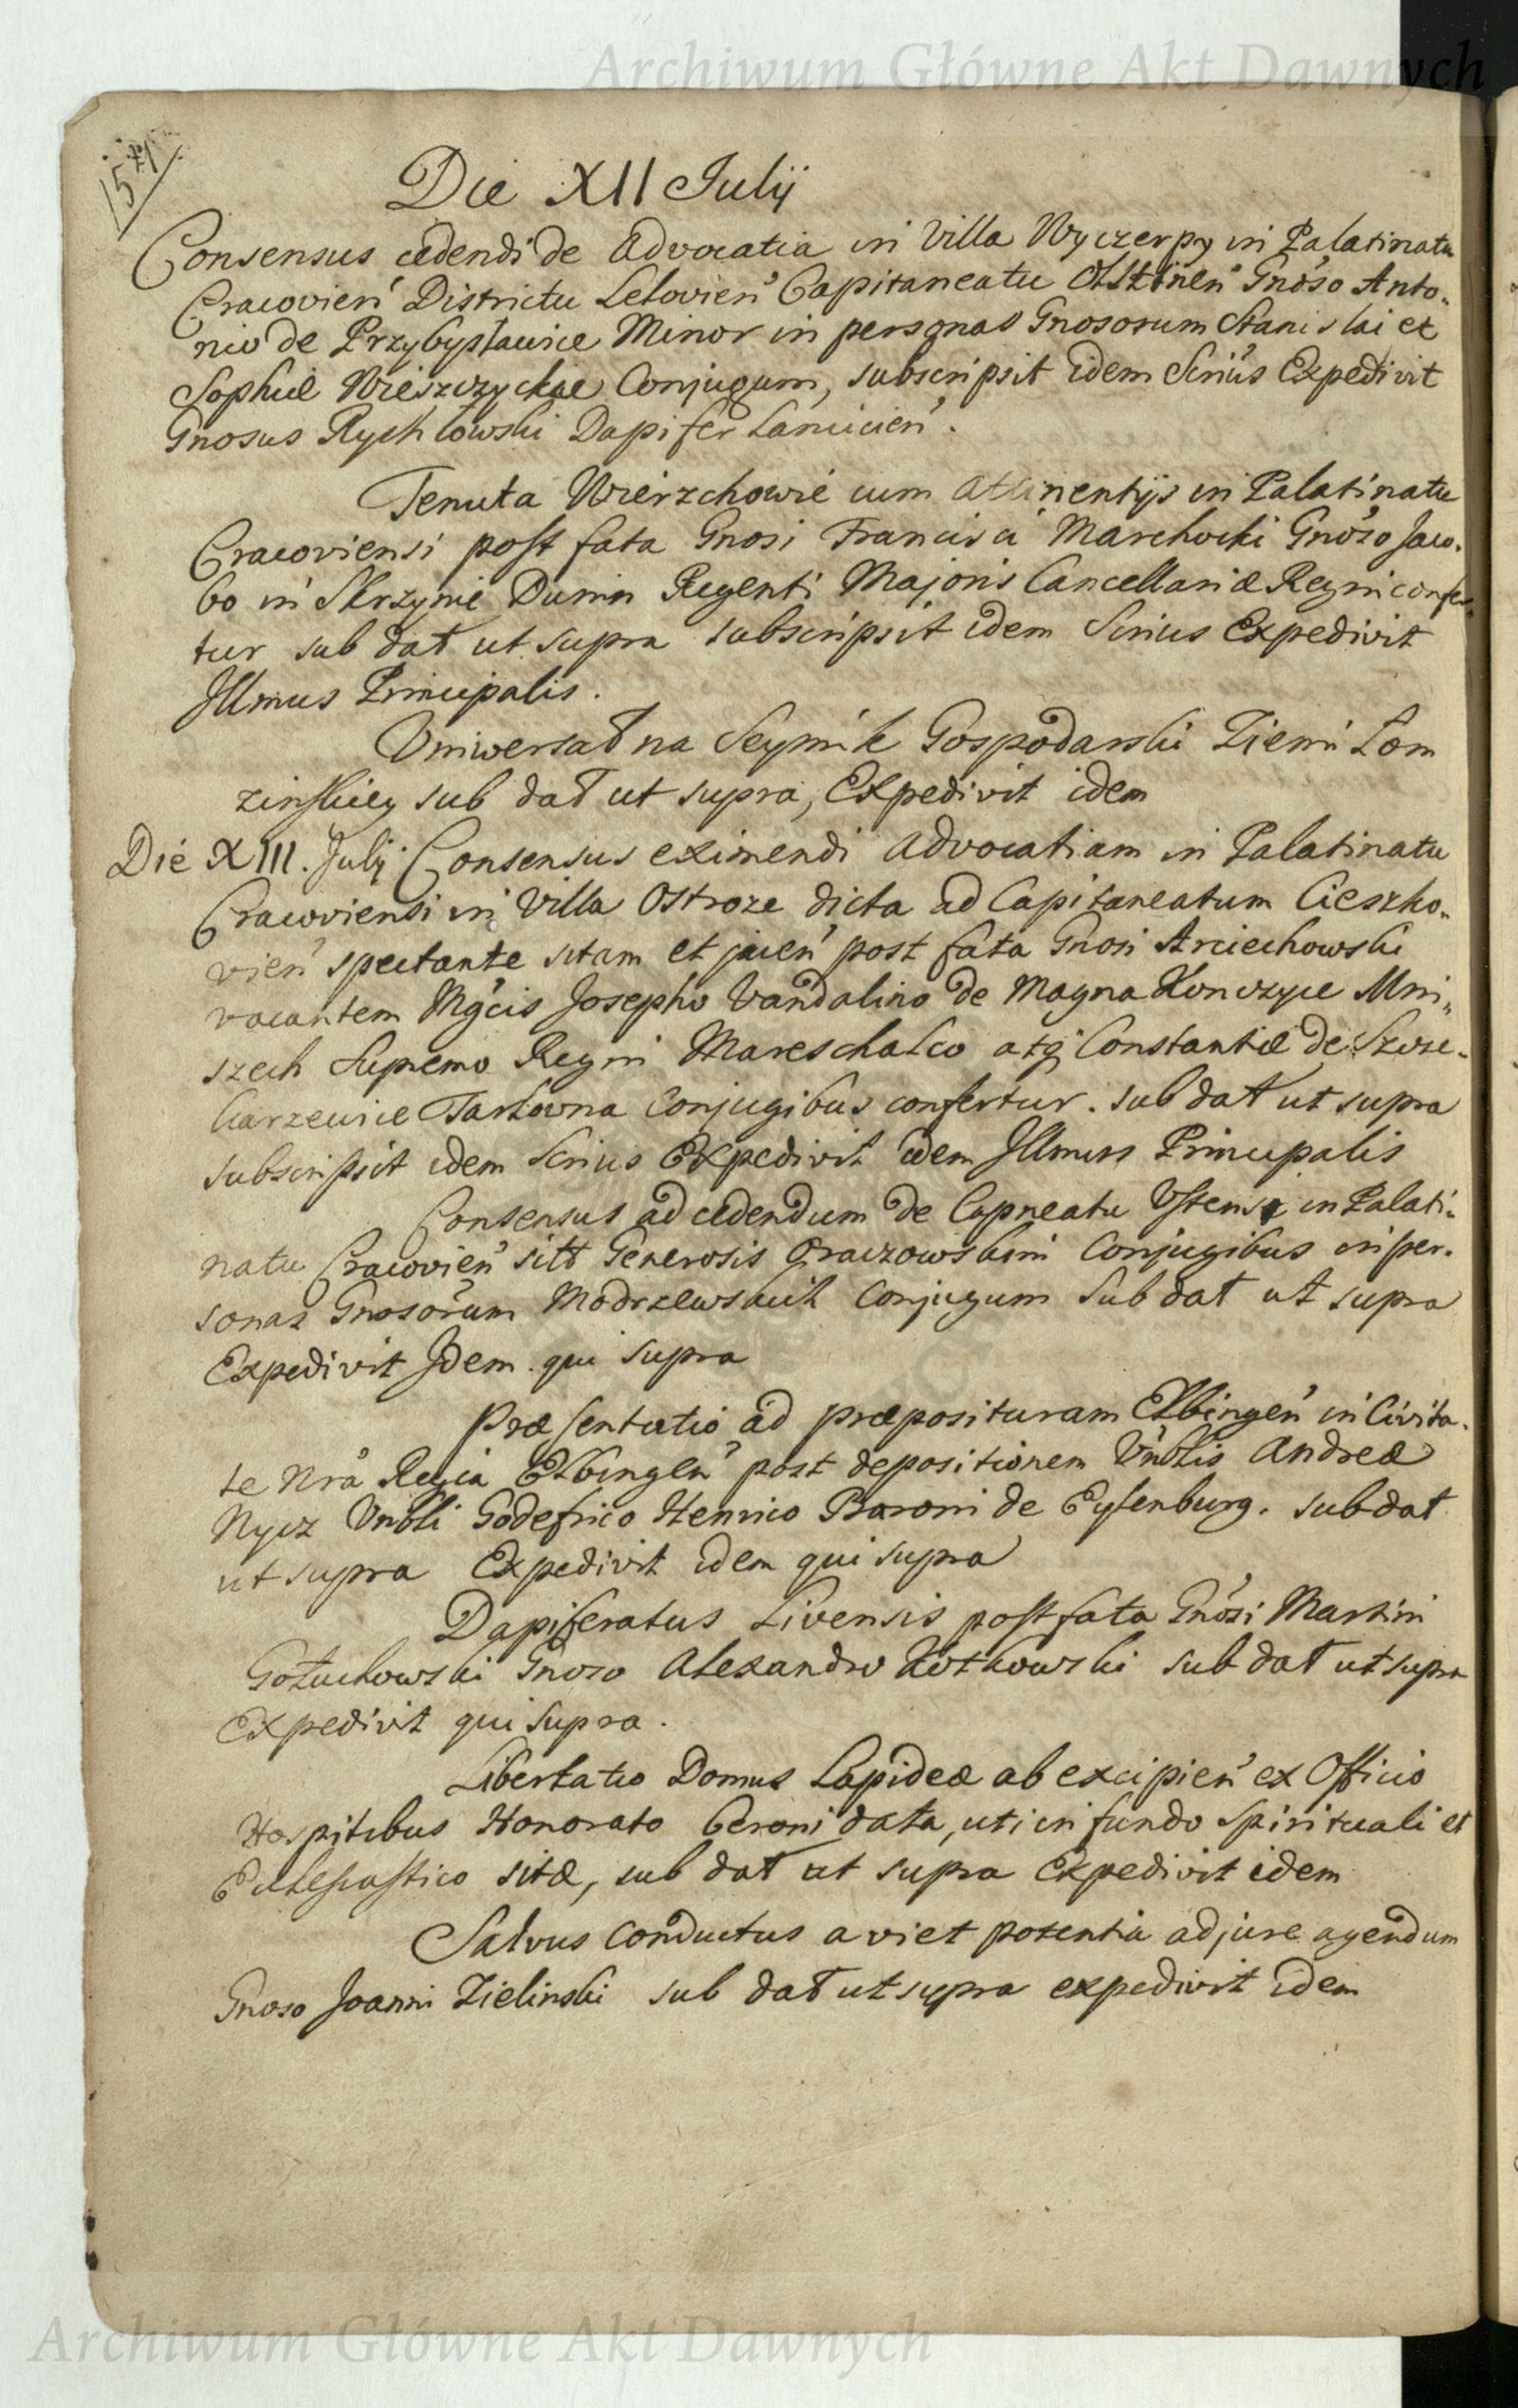 Archiwum Główne Akt Dawnych
Die XII Julij
Consensus cedendi de Advocatia in Villa Wyczerpy in Palatinatu
Cracovien Districtu Lelovien Capitaneatu Olsztinen Gnoso Anto-
nio de Przybysławice Minor in personas Gnosorum Stanislai et
Sophiæ Wieszczyckie Conjugum, subscripsit idem Serius Expedivit
Gnosus Rychłowski Dapifer Lancicien.
Tenuta Wierzchowie cum attinentijs in Palatinatu
Cracoviensi post fata Gnosi Francisci Marchocki Gnoso Jaco-
bo in Skrzynie Dunin Regenti Majoris Cancellariæ Regni confer-
tur sub dat ut supra subscripsit idem Serius Expedivit
Illmus Principalis.
Uniwersał na Seymik Gospodarski Ziemi Łom
zinskiey sub dat ut supra, Expedivit idem
Die XIII. Julij Consensus eximendi Advocatiam in Palatinatu
Cracoviensi in Villa Ostroze dicta ad Capitaneatum Cieszko-
vien spectante sitam et jacen post fata Gnosi Arciechowski
vacantem Mgcis Josepho Vandalino de Magna Konczyce Mni-
szech Supremo Regni Mareschalco atq Constantiæ de Szcze-
karzewice Tarłowna Conjugibus confertur. sub dat ut supra
subscripsit idem Serius Expedivit idem Illmus Principalis
Consensus ad cedendum de Capneatu Ustensi in Palati-
natu Cracovien sitt Generosis Graczowskim Conjugibus in per-
sonas Gnosorum Modrzewskich Conjugum Sub dat ut supra
Expedivit Idem qui supra
Præsentatio ad præposituram Elbingen in Civita-
te Nra Regia Elbingen post depositionem Vnblis Andreæ
Nycz Vnbli Godefrico Henrico Baroni de Eysenburg. sub dat
ut supra Expedivit idem qui supra
Dapiferatus Livensis post fata Gnosi Martini
Gołuchowski Gnoso Alexandro Kotkowski sub dat ut supra
Expedivit qui supra.
Libertatio Domus Lapideæ ab excipien ex Officio
Hospitibus Honorato Ceroni data, uti in fundo Spirituali et
Ecclesiastico sitæ, sub dat ut supra Expedivit idem
Salvus Conductus a vi et potentia ad jure agendum
Gnoso Joanni Zielinski sub dat ut supra expedivit idem
Archiwum Główne Akt Dawnych